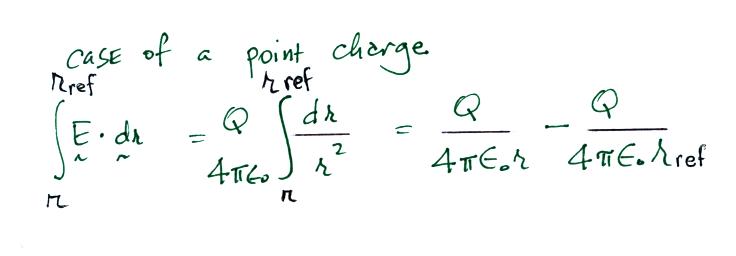 case of a point charge
∫_r^{r_ref} E · dr = Q/4πε₀ ∫_r^{r_ref} dr/r² = Q/4πε₀r − Q/4πε₀r_ref